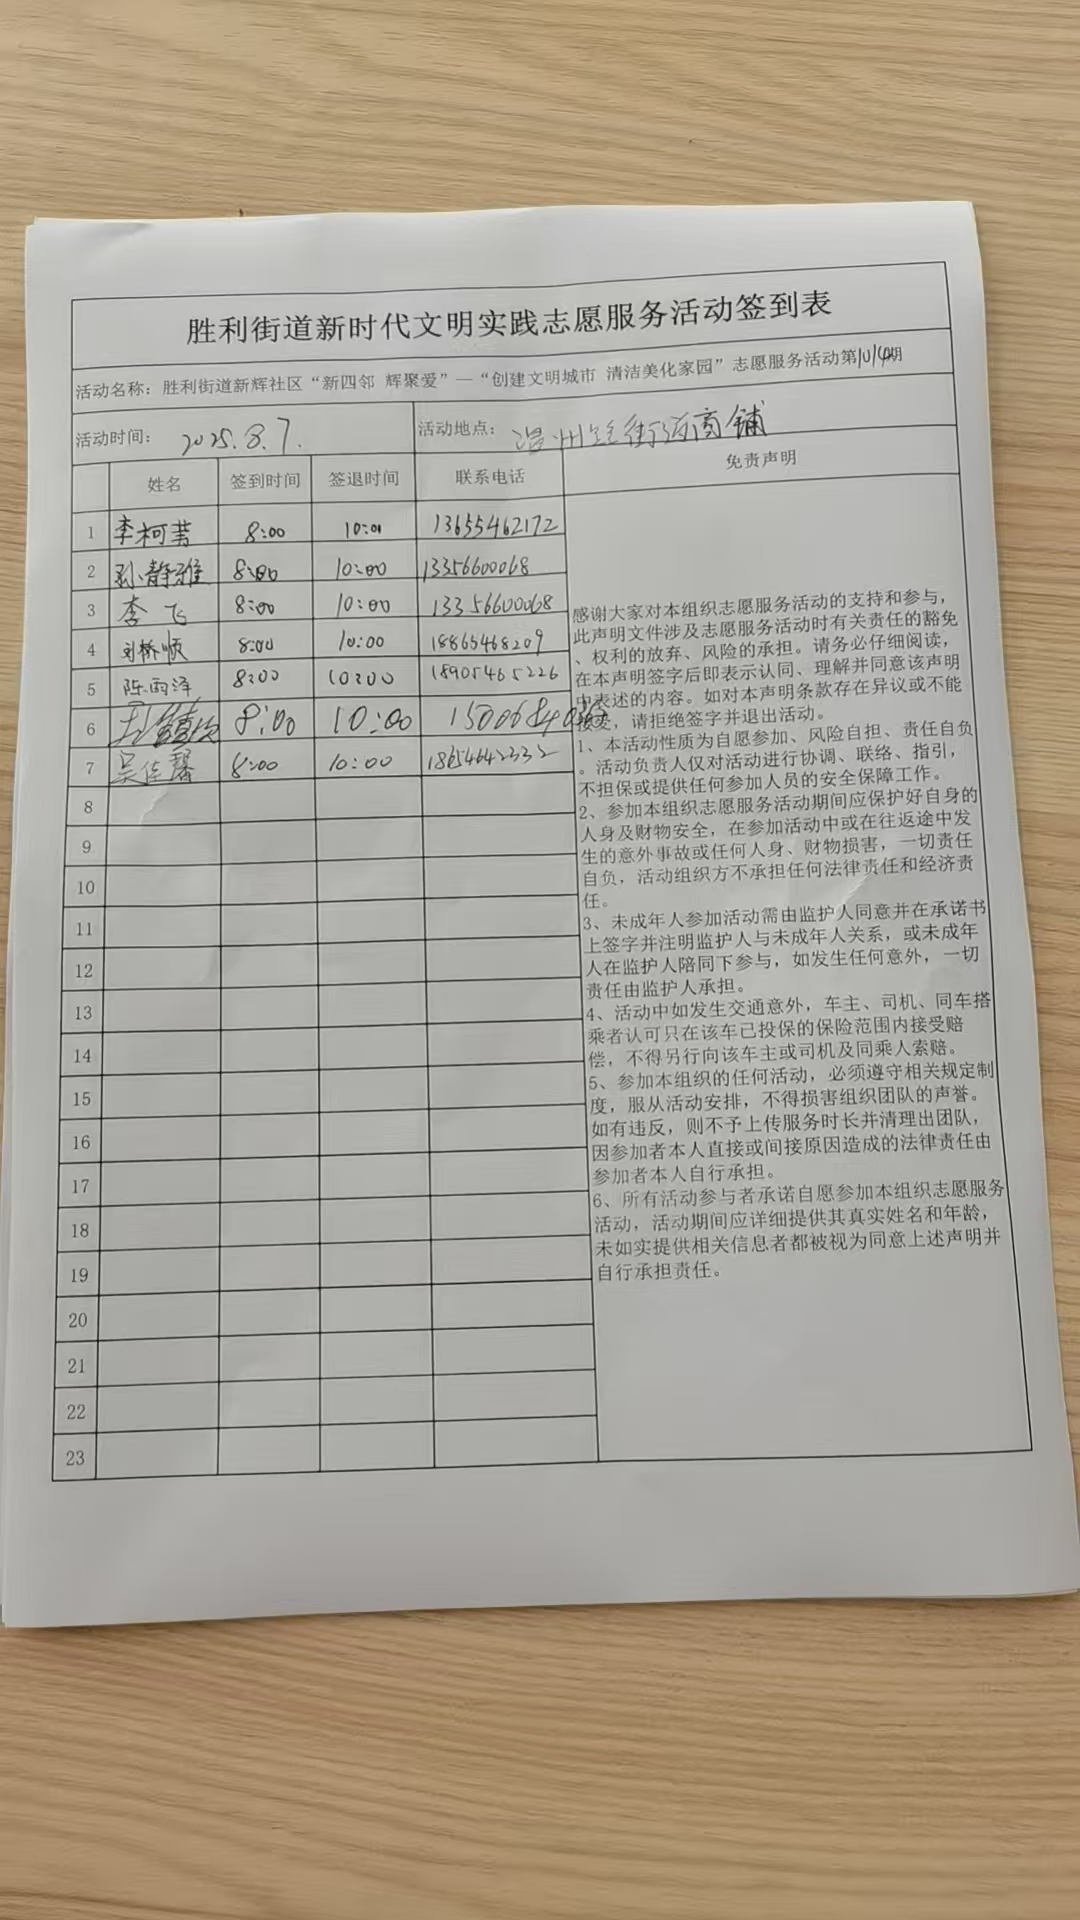 胜利街道新时代文明实践志愿服务活动签到表
活动名称：胜利街道新辉社区“新四邻 辉聚爱”—“创建文明城市 清洁美化家园”志愿服务活动第1014期
活动时间： 2025.8.7. 活动地点： 温州路街沿商铺
姓名 签到时间 签退时间 联系电话 免责声明
1 李柯萱 8:00 10:00 13655462172
2 孙静雅 8:00 10:00 13356600068
3 李飞 8:00 10:00 13356600068
4 刘桥顺 8:00 10:00 18865468209
5 陈雨泽 8:00 10:00 18905465226
6 8:00 10:00
7 吴佳馨 8:00 10:00
8
9
10
11
12
13
14
15
16
17
18
19
20
21
22
23
感谢大家对本组织志愿服务活动的支持和参与，
此声明文件涉及志愿服务活动时有关责任的豁免
、权利的放弃、风险的承担。请务必仔细阅读，
在本声明签字后即表示认同、理解并同意该声明
中表述的内容。如对本声明条款存在异议或不能
接受，请拒绝签字并退出活动。
1、本活动性质为自愿参加、风险自担、责任自负
。活动负责人仅对活动进行协调、联络、指引，
不担保或提供任何参加人员的安全保障工作。
2、参加本组织志愿服务活动期间应保护好自身的
人身及财物安全，在参加活动中或在往返途中发
生的意外事故或任何人身、财物损害，一切责任
自负，活动组织方不承担任何法律责任和经济责
任。
3、未成年人参加活动需由监护人同意并在承诺书
上签字并注明监护人与未成年人关系，或未成年
人在监护人陪同下参与，如发生任何意外，一切
责任由监护人承担。
4、活动中如发生交通意外，车主、司机、同车搭
乘者认可只在该车已投保的保险范围内接受赔
偿，不得另行向该车主或司机及同乘人索赔。
5、参加本组织的任何活动，必须遵守相关规定制
度，服从活动安排，不得损害组织团队的声誉。
如有违反，则不予上传服务时长并清理出团队，
因参加者本人直接或间接原因造成的法律责任由
参加者本人自行承担。
6、所有活动参与者承诺自愿参加本组织志愿服务
活动，活动期间应详细提供其真实姓名和年龄，
未如实提供相关信息者都被视为同意上述声明并
自行承担责任。